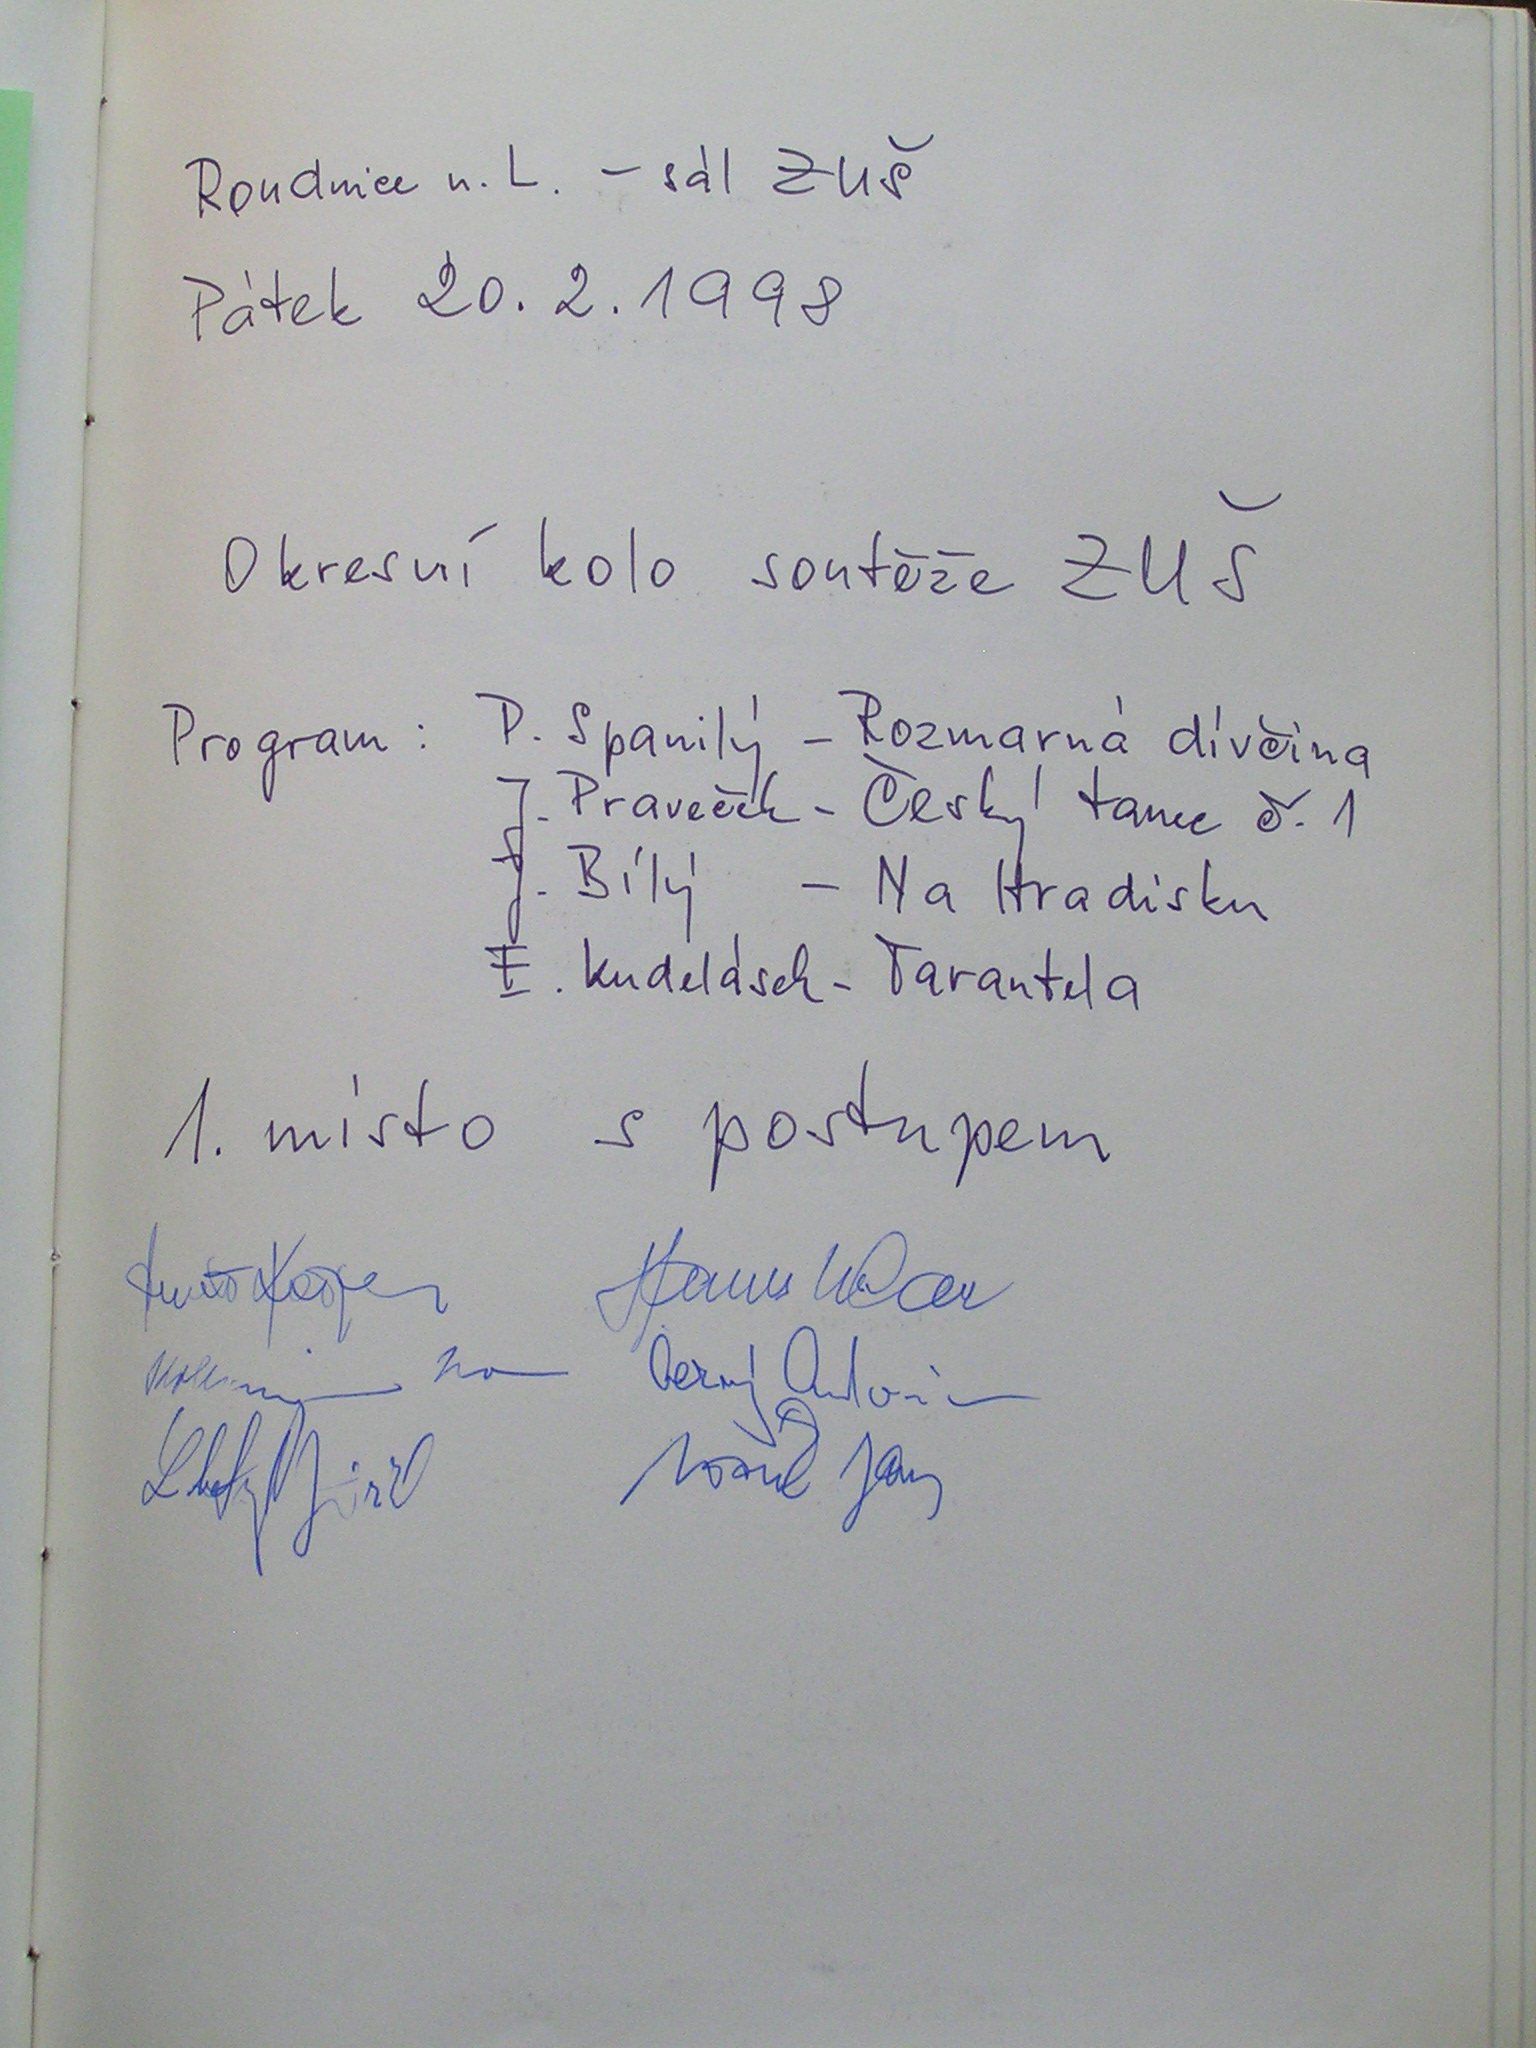 Roudnice n. L. – sál ZUŠ
Pátek 20. 2. 1998
Okresní kolo soutěže ZUŠ
Program: P. Spanilý – Rozmarná dívčina
J. Praveček – Český tanec č. 1
J. Bílý – Na Hradisku
E. Kudelásek – Tarantela
1. místo s postupem
Černý Antonín
Jiří
Jan